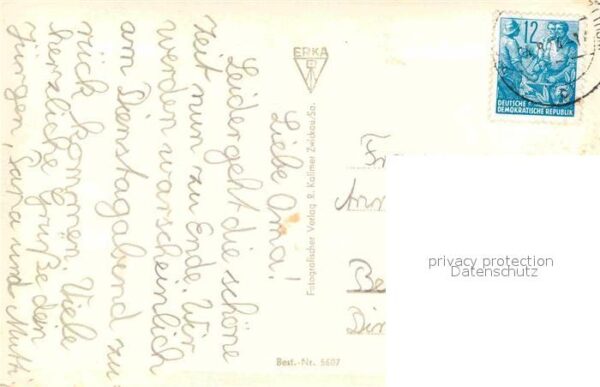 Liebe Oma!
Leider geht die schöne
Zeit nun zu Ende. Wir
werden warscheinlich
am Dienstagabend zu-
rück kommen. Viele
herzliche Grüße dein
Jürgen, Papa und Mutti.
ERKA
Fotografischer Verlag R. Kallmer Zwickau/Sa.
Best.-Nr. 5607
12
DEUTSCHE
DEMOKRATISCHE REPUBLIK
Fr
Ann
Be
Dir
privacy protection
Datenschutz